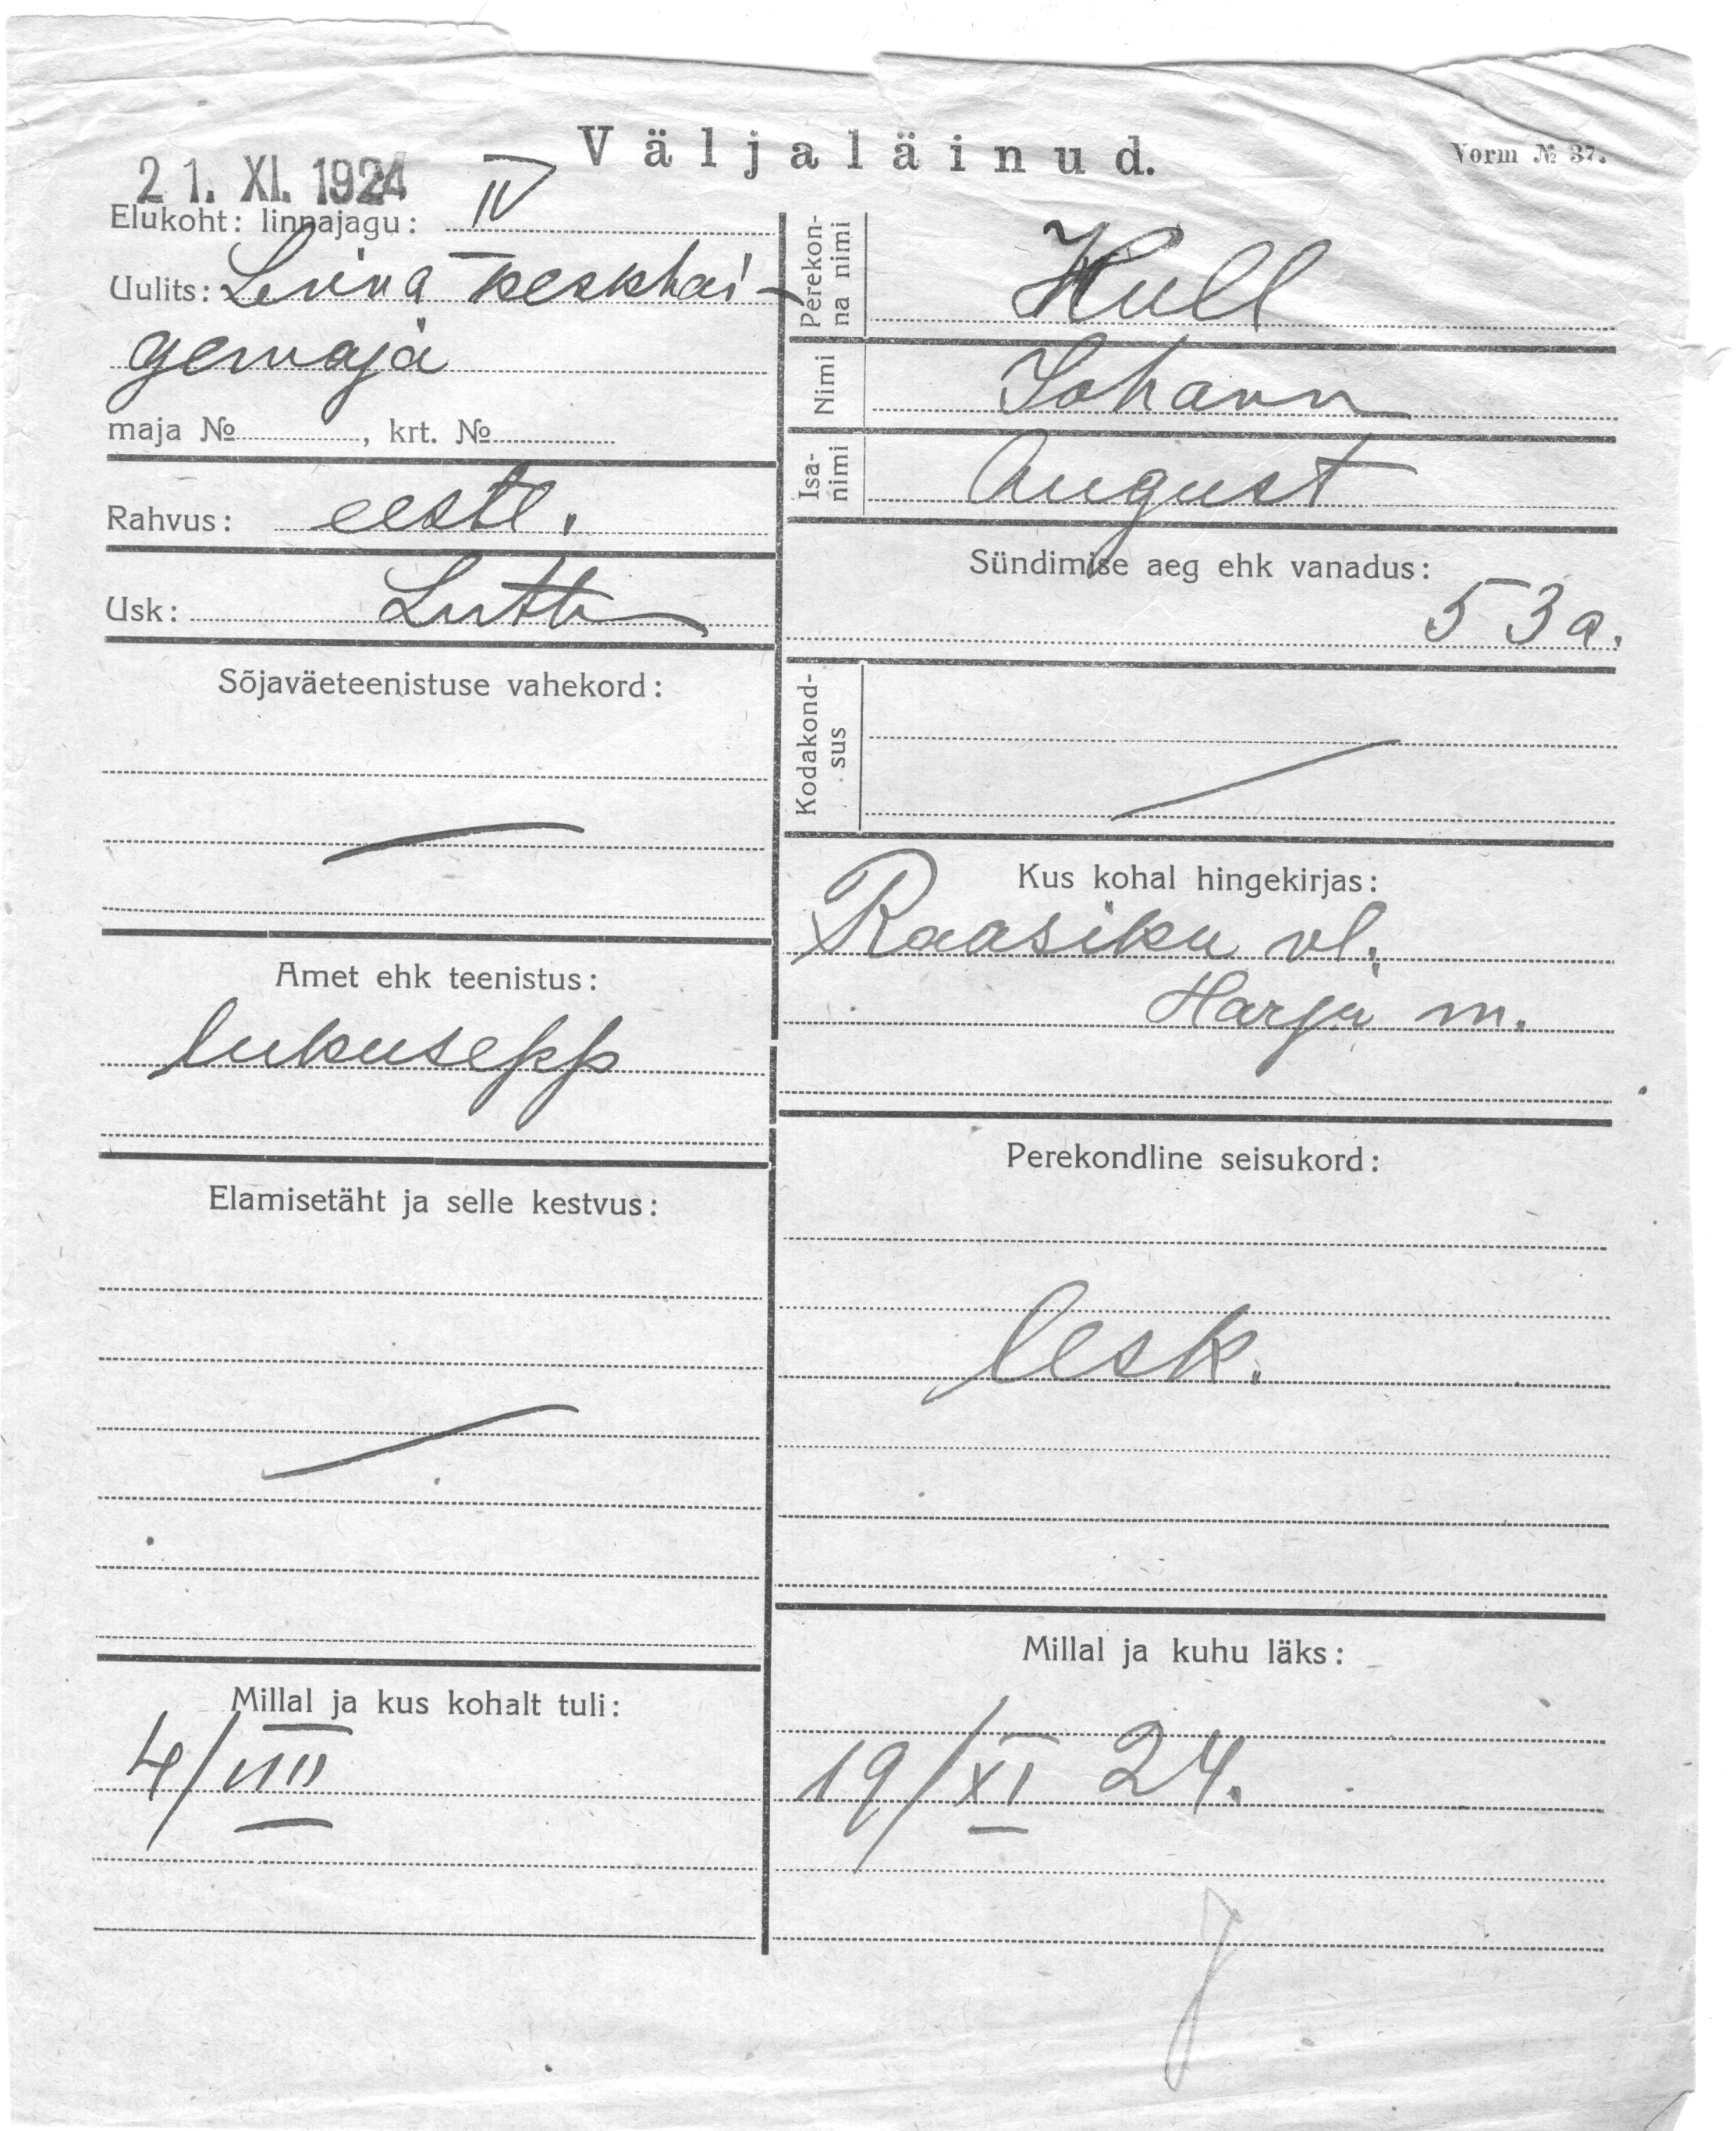 Väljaläinud.
Vorm № 37.
21. XI. 1924
Elukoht: linnajagu: IV
Uulits: Linna keskhai-
gemaja
maja № , krt. №
Rahvus: eestl.
Usk: Luth
Sõjaväeteenistuse vahekord:
Amet ehk teenistus:
lukusepp
Elamisetäht ja selle kestvus:
Millal ja kus kohalt tuli:
4/VIII
Perekon-
na nimi
Hull
Nimi Johann
Isa-
nimi
August
Sündimise aeg ehk vanadus:
53 a.
Kodakond-
sus
Kus kohal hingekirjas:
Raasiku vl.
Harju m.
Perekondline seisukord:
lesk.
Millal ja kuhu läks:
19/XI 24.